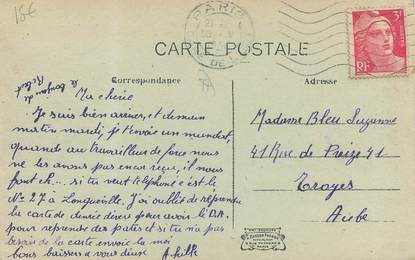 15€
PARIS
21
3F
RF
CARTE POSTALE
DE
Correspondance
Adresse
le bonjour de
Robert
Ma chérie
Je suis bien arrivé, et demain
matin mardi, je t'envoie un mandat,
quands au travailleur de force nous
ne les avons pas encore reçu, il nous
si tu veut téléphoné c'est le
No 27 à Longueville. J'ai oublet de reprendre
la carte de denrée divers pour avoir le D.A.
pour reprendre des pates et si tu n'a pas
besoin de la carte envoie la moi
bons baisers a vous deux
Madame Bleu Suzanne
41 Rue de Preize 41
Troyes
Aube
PARIS